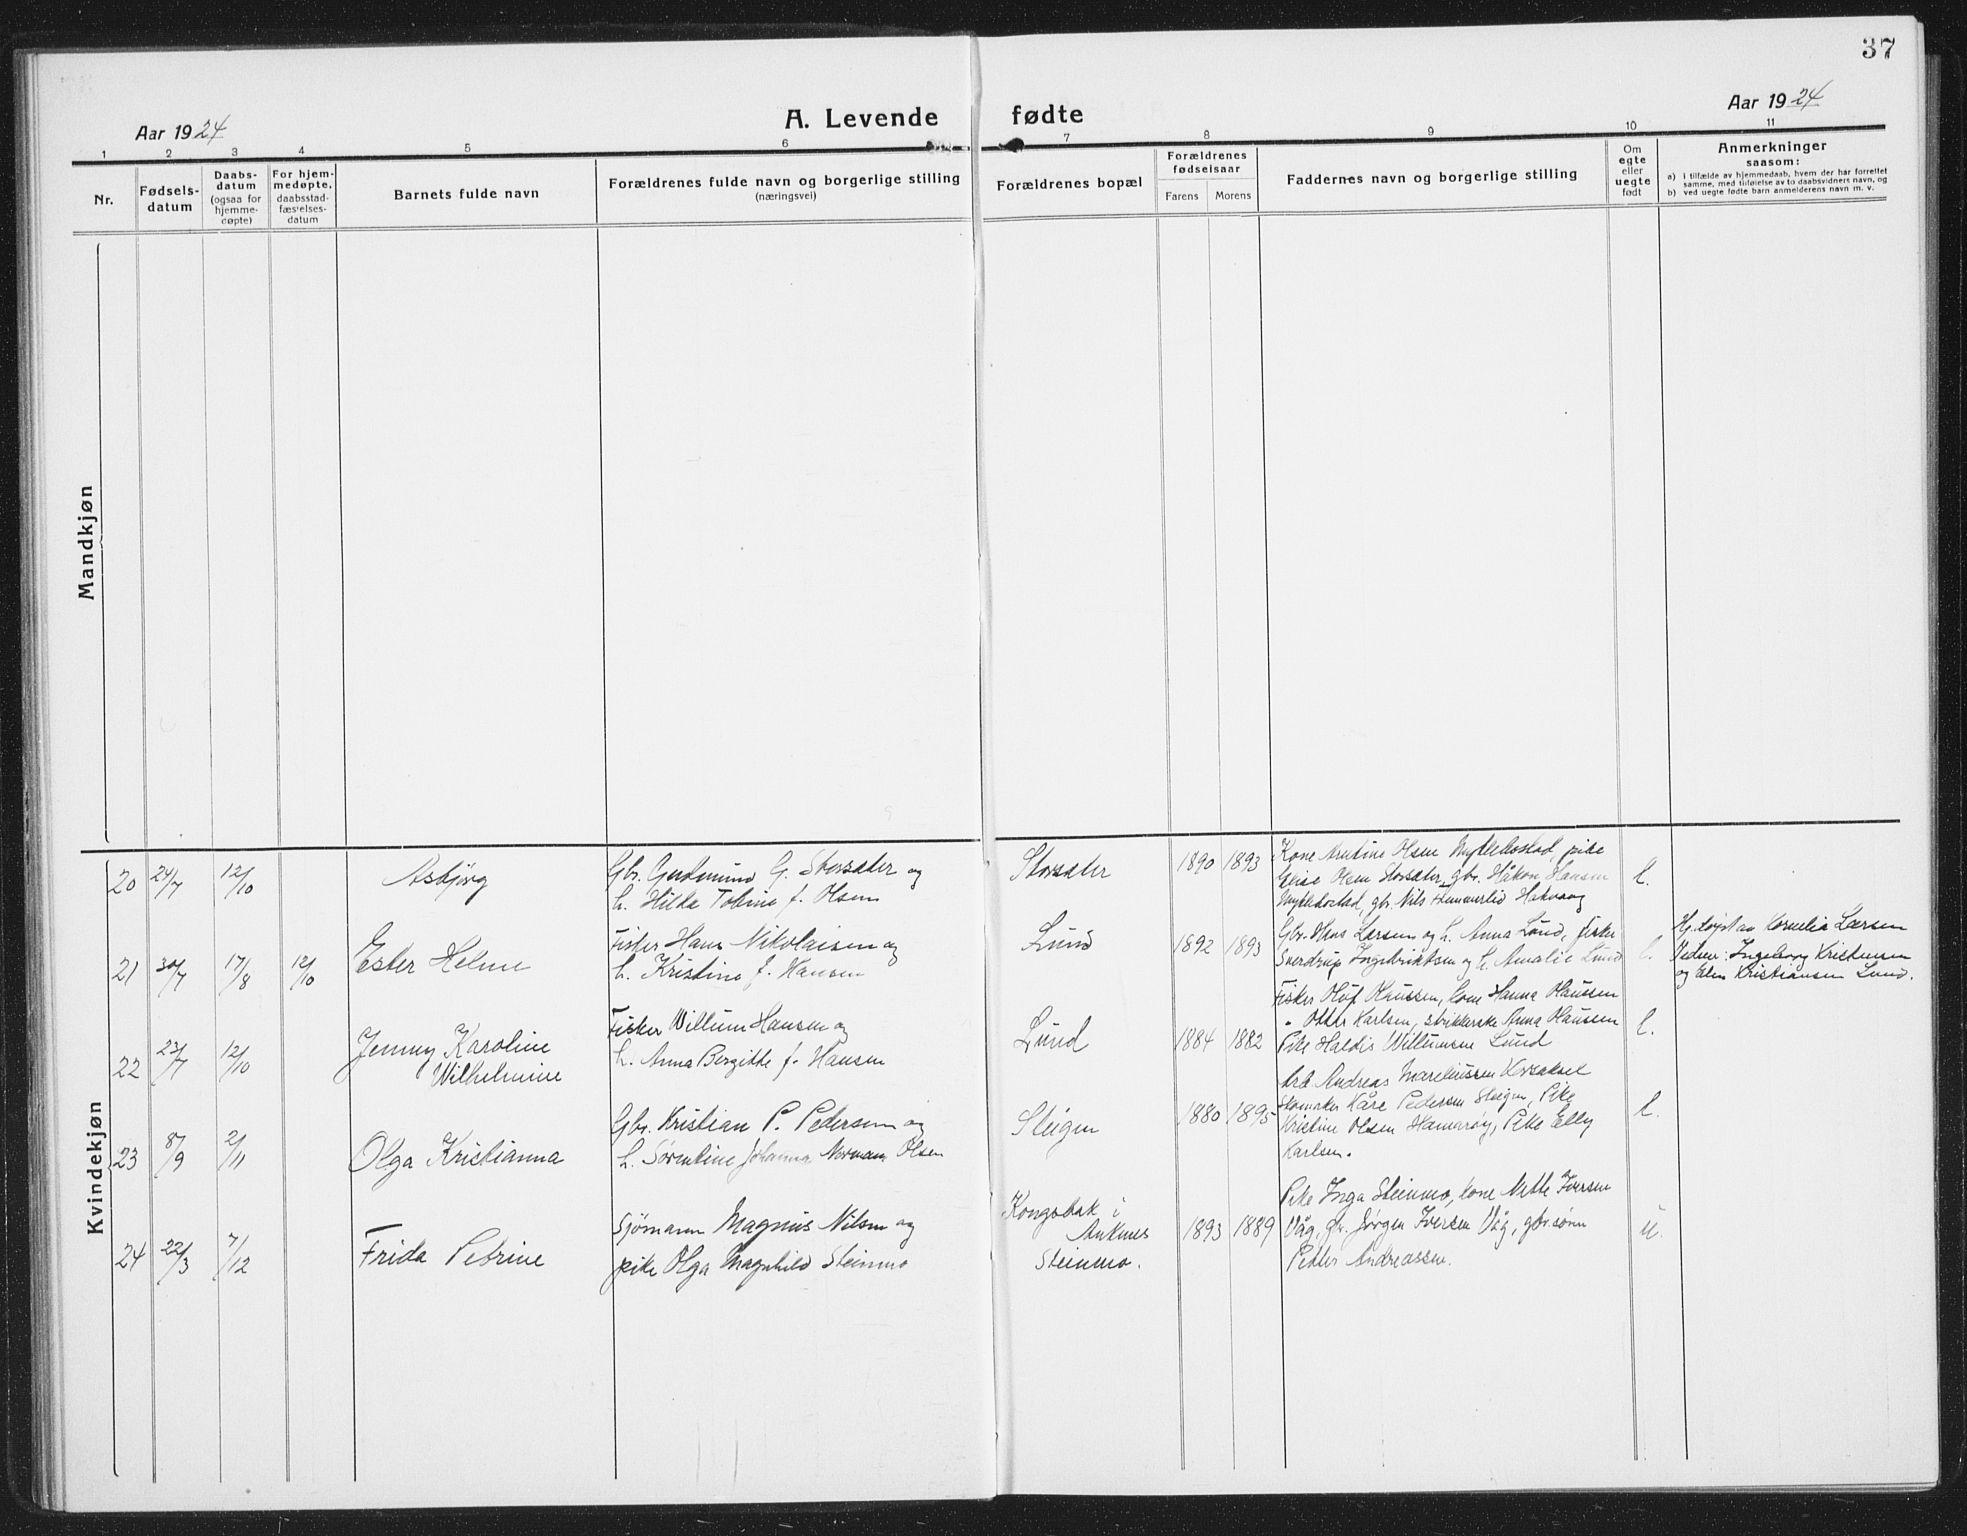 37
Aar 1924
A. Levende fødte
Aar 1924
1 2 3 4 5 6 7 8 9 10 11
Nr.
Fødsels-
datum
Daabs-
datum
(ogsaa for
hjemme-
døpte)
For hjem-
medøpte,
daabsstad-
fæstelses-
datum
Barnets fulde navn
Forældrenes fulde navn og borgerlige stilling
(næringsvei)
Forældrenes bopæl
Forældrenes
fødselsaar
Farens Morens
Faddernes navn og borgerlige stilling
Om
egte
eller
uegte
født
Anmerkninger
saasom:
a) i tilfælde av hjemmedaab, hvem der har forrettet
samme, med tilføielse av to daabsvidners navn, og
b) ved uegte fødte barn anmelderens navn m. v.
Mandkjøn
Kvindekjøn
20 24/7 12/10
Asbjörg
Gbr. Gudmund G. Storsæter og
h. Hilda Tobine f. Olsen
Storsæter
1890 1893
Kone Olsen Myklebostad, pike
Elise Olsen Storsæter, gbr. Håkon Hansen
Myklebostad, gbr. Nils Hammerlid
l.
21 30/7 17/8 12/10
Ester Helene
Fisker Hans Nikolaisen og
h. Kristine f. Hansen
Lund
1892 1893
Gbr. Hans Larsen og h. Anna Lund, fisker
Sverdrup Ingebriktsen og h. Amalie Lund
l.
Hj.døpt av Kornelia Larsen
Vidner: Ingeborg Kristensen
og Elen Kristiansen Lund.
22 23/7 12/10
Jenny Karoline
Wilhelmine
Fisker Willum Hansen og
h. Anna Bergitte f. Hansen
Lund
1884 1882
Fisker Oluf Olaussen, kone Hanna Olaussen
" Ottar Karlsen, strikkerske Anna Olausen
Pike Haldis Willumsen Lund
l.
23 8/9 2/11
Olga Kristianna
Gbr. Kristian P. Pedersen og
h. Sørentine Johanna Normann Olsen
Steigen
1880 1895
Arb. Andreas
Kåre Pedersen Steigen, Pike
Kristine Olsen Hamarøy, Pike Elly
Karlsen.
l.
24 22/3 7/12
Frida Petrine
Sjömann Magnus Nilsen og
pike Olga Magnhild Steinmo
Kongsbak i
Ankenes
Steinmo.
1893 1889
Pike Inga Steinmo, kone Mette Iversen
Våg, gbr. Jørgen Iversen Våg, gbr.sønn
Petter Andreassen.
u.